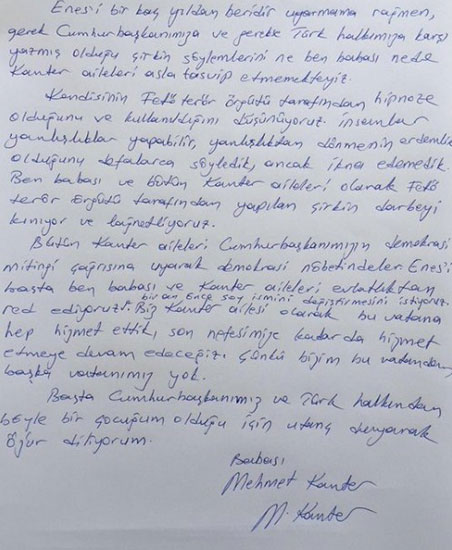 Enes'i bir kaç yıldan beridir uyarmama rağmen,
gerek Cumhurbaşkanımıza ve gerekse Türk halkımıza karşı
yazmış olduğu çirkin söylemlerini ne ben babası nede
Kanter aileleri asla tasvip etmemekteyiz.
Kendisinin Fetö terör örgütü tarafından hipnoze
olduğunu ve kullanıldığını düşünüyoruz. insanlar
yanlışlıklar yapabilir, yanlışlıktan dönmenin erdemlik
olduğunu defalarca söyledik, ancak ikna edemedik.
Ben babası ve bütün Kanter aileleri olarak Fetö
terör örgütü tarafından yapılan çirkin darbeyi
kınıyor ve lağnetliyoruz.
Bütün Kanter aileleri Cumhurbaşkanımızın demokrasi
mitingi çağrısına uyarak demokrasi nöbetindeler. Enes'i
başta ben babası ve Kanter aileleri evlatlıktan
bir an önce soy ismini değiştirmesini istiyoruz.
red ediyoruz. Biz Kanter ailesi olarak bu vatana
hep hizmet ettik, son nefesimize kadar da hizmet
etmeye devam edeceğiz. Çünkü bizim bu vatandan
başka vatanımız yok.
Başta Cumhurbaşkanımız ve Türk halkından
böyle bir çocuğum olduğu için utanç duyarak
özür diliyorum.
Babası
Mehmet Kanter
M. Kanter